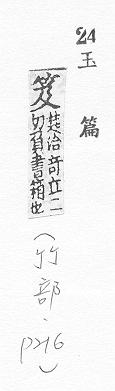 24
玉篇
笈 其洽奇立二
切負書箱也
(竹部.
p216)